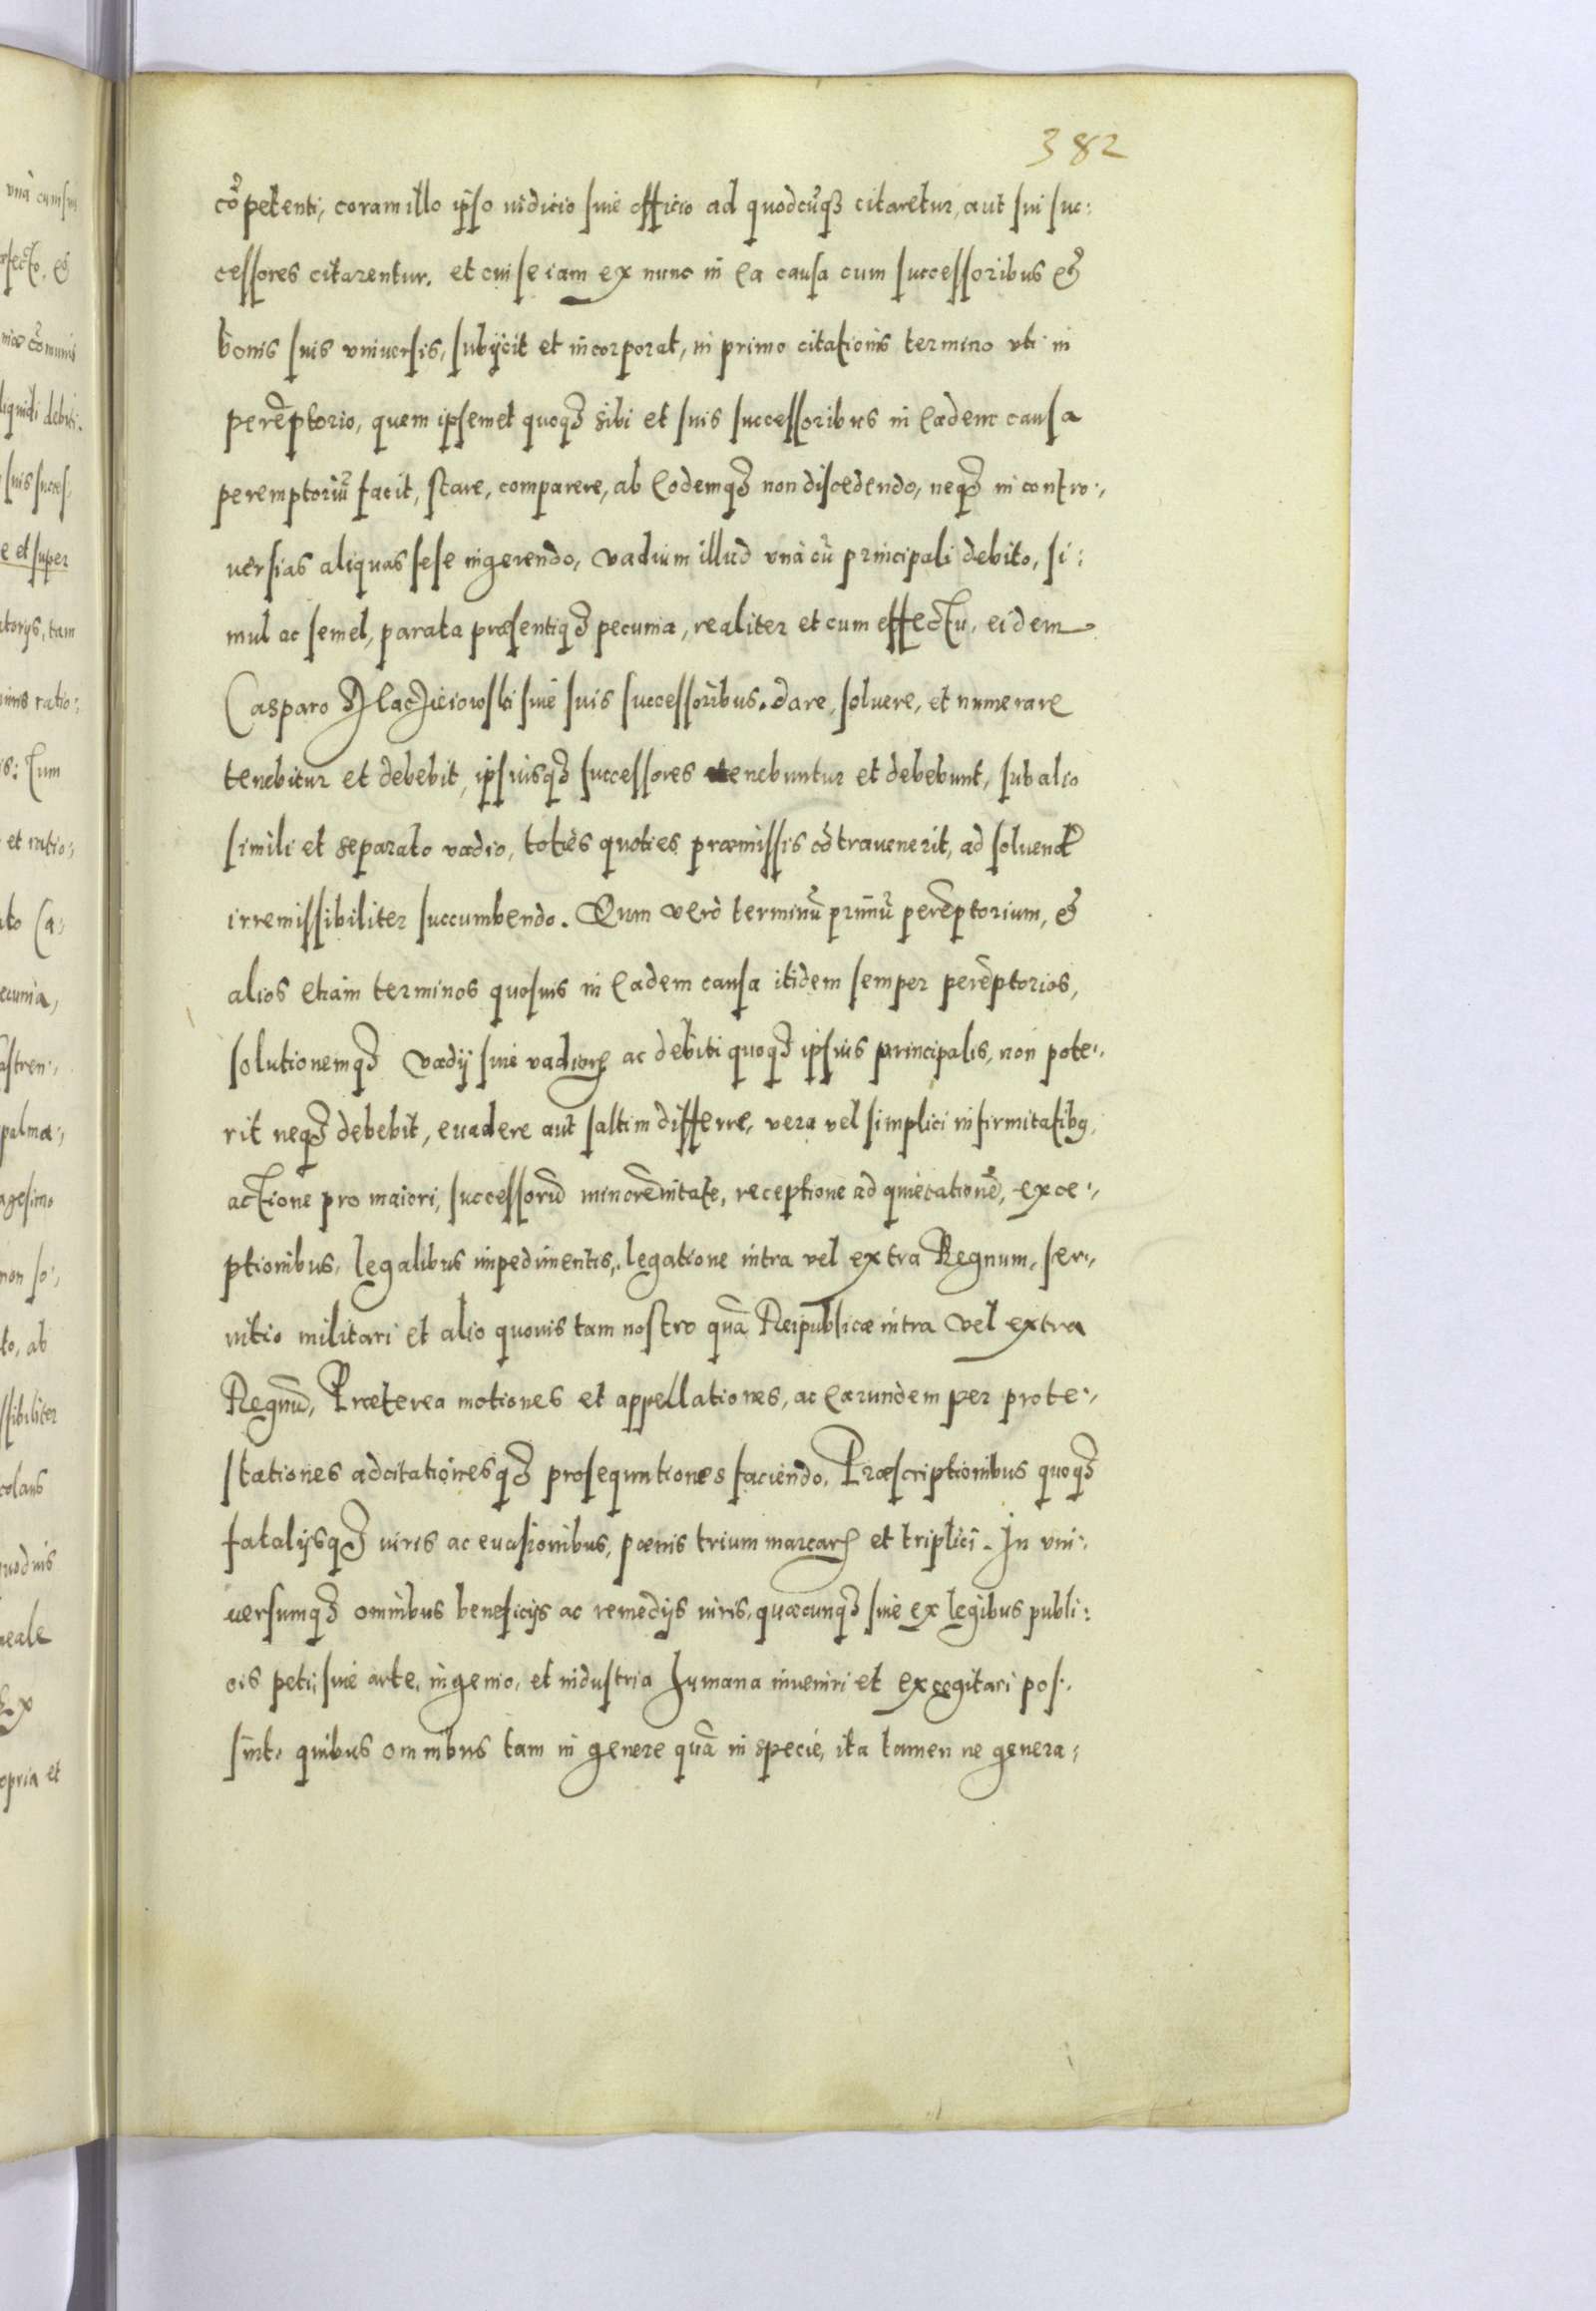 382
cõpetenti, coram illo ipso iudicio siue officio ad quodcũq3 citaretur, aut sui suc:
cessores citarentur. et cui se iam ex nunc in ea causa cum successoribus et
bonis suis vniuersis, subijcit et incorporat, in primo citationis termino vti in
perẽptorio, quem ipsemet quoq3 sibi et suis successoribus in eadem causa
peremptoriũ facit, stare, comparere, ab eodemq3 non discedendo, neq3 in contro:,
uersias aliquas sese ingerendo, vadium illud vnà cũ principali debito, si:
mul ac semel, parata præsentiq3 pecunia, realiter et cum effectu, eidem
Casparo siue suis successoribus. dare, soluere, et numerare
tenebitur et debebit, ipsiusq3 successores tenebuntur et debebunt, sub alio
simili et separato vadio, toties quoties præmissis cõtrauenerit, ad soluend
irremissibiliter succumbendo. Quem verò terminũ primũ perẽptorium, et
alios etiam terminos quosuis in eadem causa itidem semper perẽptorios,
solutionemq3 vadij siue vadiorum ac debiti quoq3 ipsius principalis, non pote:,
rit neq3 debebit, euadere aut saltim differre, vera vel simplici infirmitatibus,
actione pro maiori, successorũ minorẽnitate, receptione ad quietationẽ, exce:,
ptionibus, legalibus impedimentis, legatione intra vel extra Regnum, ser:,
uitio militari et alio quouis tam nostro quã Reipublicæ intra vel extra
Regnũ, Præterea motiones et appellationes, ac earundem per prote:,
stationes adcitationesq3 prosequutiones faciendo. Præscriptionibus quoq3
fatalijsq3 iuris ac euasionibus, poenis trium marcarum et triplici. In vni:,
uersumq3 omnibus beneficijs ac remedijs iuris, quæcunq3 siue ex legibus publi:
cis peti, siue arte, ingenio, et industria humana inueniri et excogitari pos:,
sint. quibus omnibus tam in genere quã in specie, ita tamen ne genera: